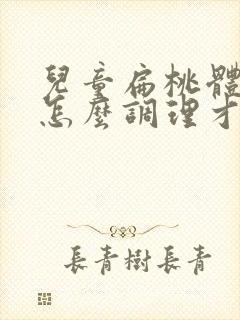 兒童扁桃體
怎麼調理才
長青樹長青